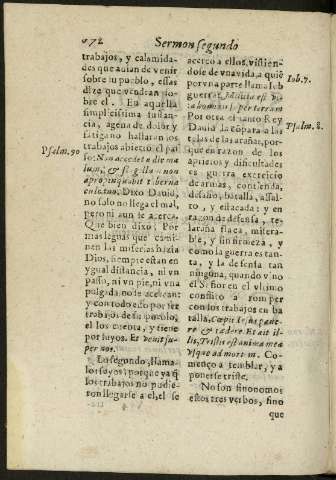 172 Sermon segundo
trabajos, y calamida-
des que auian de venir
sobre tu pueblo, essas
dize que vendran so-
bre el. En aquella
simplicissima sustan-
cia, agena de dolor y
fatiga no hallaron los
trabajos abierto el pa-
so: Non accedet ad te ma
lum, & flagellum non
apropinquabit taberna
culo tuo. Dixo Dauid,
no solo no llega el mal,
pero ni aun se acerca.
Que bien dixo: Por
mas leguas que cami-
nen las miserias hazia
Dios, siempre estan en
ygual distancia, ni vn
passo, ni vn pie, ni vna
pulgada no se acercan:
y con todo esso por ser
trabajos de su pueblo,
el los cuenta, y tiene
por suyos. Et venit su-
per nos.
Lo segundo, llama
los suyos: porque ya q̃
los trabajos no pudie-
ron llegarse a el, el se
Psalm. 90
acerco a ellos, vistien-
dose de vna vida, a quiẽ
por vna parte llama Iob
guerra: Militia est vi-
ta hominis super terram
Por otra el santo Rey
Dauid la cõpara a las
telas de las arañas, por-
que en razon de los
aprietos y dificultades
es guerra exercicio
de armas, contienda,
desafio, batalla, assal-
to, y estacada: y en
razon de defensa, te-
laraña flaca, misera-
ble, y sin firmeza, y
como la guerra es tan-
ta, y la defensa tan
ninguna, quando vino
el Señor en el vltimo
conflito a romper
con los trabajos en ba-
talla, Cœpit Iesus pauere
& tædere. Et ait il-
lis, Tristis est anima mea
vsque ad mortem. Co-
menço a temblar, y a
ponerse triste.
No son sinonomos
estos tres verbos, sino
que
Iob. 7.
Psalm. 8.